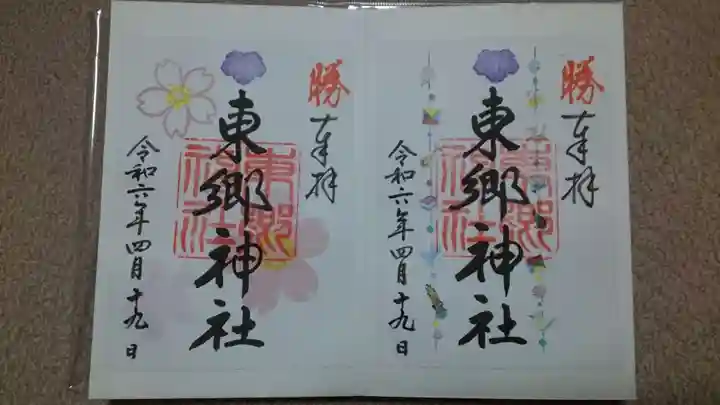 勝
奉拝
東郷神社
東郷神社
令和六年四月十九日
勝
奉拝
東郷神社
東郷神社
令和六年四月十九日